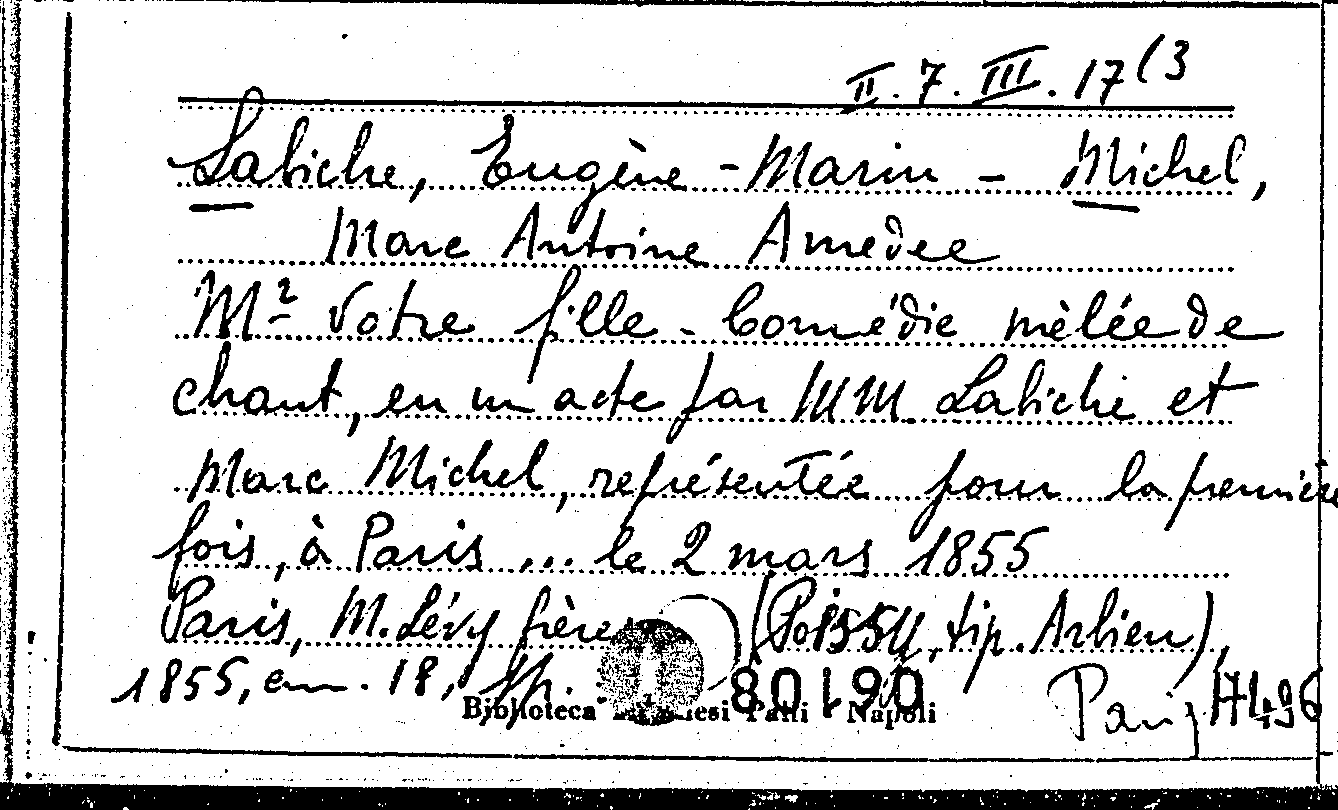 II. 7. III. 17(3
Labiche, Eugène - Marin - Michel,
Marc Antoine Amedee
M² votre fille - Comédie mêlée de
chant, en un acte par MM. Labiche et
Marc Michel, représentée pour la première
fois, à Paris ... le 2 mars 1855
Paris, M. Lévy frères (Poissy, tip. Arbieu),
1855, in. 18,
80190
Biblioteca Napoli